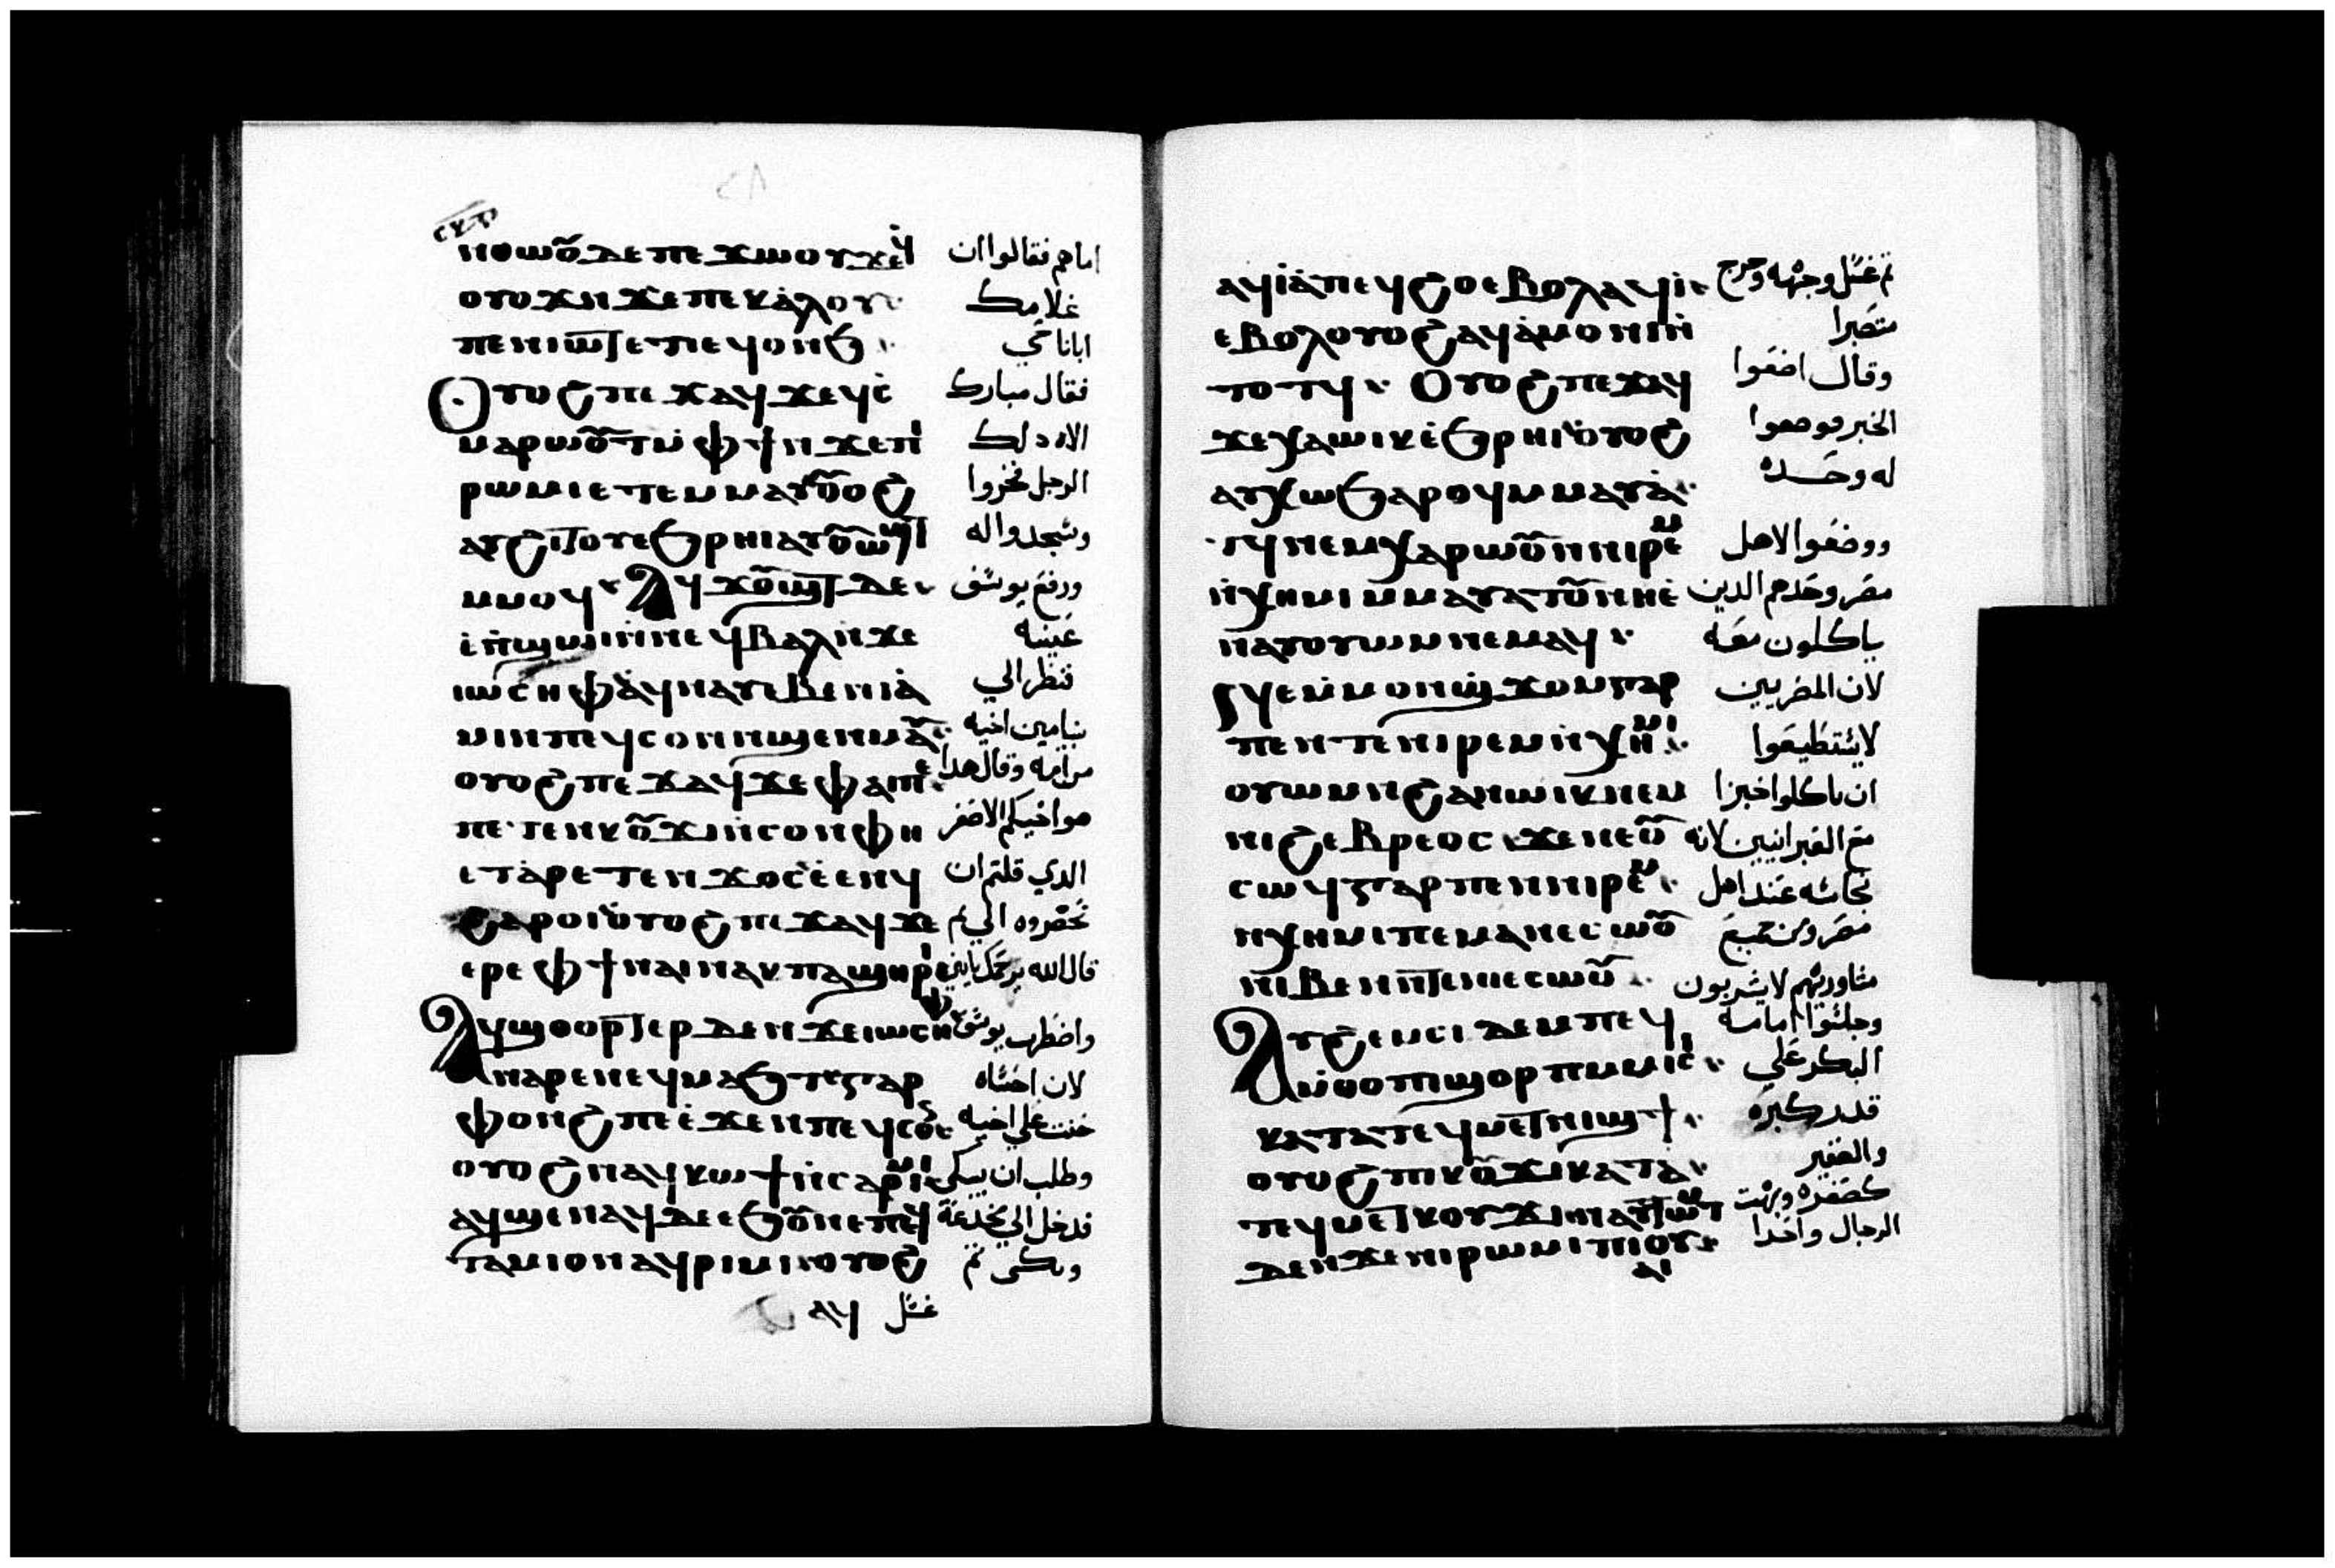 ⲛⲑⲱⲟⲩ ⲇⲉ ⲡⲉϫⲱⲟⲩ ϫⲉϥ امامهم فقالوا ان
ⲟⲩⲟϫⲏ ϫⲉ ⲡⲉⲕⲁⲗⲟⲩ غلامك
ⲡⲉⲛⲓⲱⲧ ⲉⲧⲓ ⲉϥⲟⲛϧ ابانا حي
ⲟⲩⲟϩ ⲡⲉϫⲁϥ ϫⲉ ϥⲥ فقال مبارك
ⲙⲁⲣⲱⲟⲩⲧ ⲛ̀ϫⲉⲡⲓ
ⲣⲱⲙⲓ ⲉⲧⲉⲙⲙⲁⲩ ⲟⲩⲟϩ الرجل فخروا
ⲁⲩϩⲓⲧⲟⲩ ⲉϧⲣⲏⲓ ⲁⲩⲟⲩⲱϣⲧ وسجدوا له
ⲙⲙⲟϥ ⲁϥϫⲟⲩϣⲧ ⲇⲉ ورفع يوسف
ⲉⲡϣⲱⲓ ⲛⲛⲉϥⲃⲁⲗ ⲛϫⲉ عينيه
ⲓⲱⲥⲏⲫ ⲁϥⲛⲁⲩ ⲉⲃⲉⲛⲓⲁ فنظر الي
ⲙⲓⲛ ⲡⲉϥⲥⲟⲛ ⲛϣⲉⲛⲙⲁⲩ بنيامين اخيه
ⲟⲩⲟϩ ⲡⲉϫⲁϥ ϫⲉ ⲫⲁⲓ ⲡⲉ من امه وقال هدا
ⲡⲉⲧⲉⲛⲕⲟⲩϫⲓ ⲛⲥⲟⲛ ⲫⲏ هو اخيكم الاصغر
ⲉⲧⲁⲣⲉⲧⲉⲛϫⲟⲥ ⲉⲉⲛϥ الدي قلتم ان
ϩⲁⲣⲟⲓ ⲟⲩⲟϩ ⲡⲉϫⲁϥ ϫⲉ تحضروه الي ثم
ⲉⲣⲉ ⲫϯ ⲛⲁⲓ ⲛⲁⲕ ⲡⲁϣⲏⲣⲓ قال الله يرحمك يا ابني
ⲁϥϣⲑⲟⲣⲧⲉⲣ ⲇⲉ ⲛϫⲉ ⲓⲱⲥⲏⲫ واضطرب يوسف
ⲛⲁⲣⲉ ⲛⲉϥⲙⲁϧⲧ ⲅⲁⲣ لان احشاه
ⲫⲟⲛϩ ⲡⲉ ⲉϫⲉⲛ ⲡⲉϥⲥⲟⲛ حنت علي اخيه
ⲟⲩⲟϩ ⲛⲁϥⲕⲱϯ ⲛⲥⲁⲣⲓⲙⲓ وطلب ان يبكي
ⲁϥϣⲉⲛⲁϥ ⲇⲉ ⲉϧⲟⲩⲛ ⲉⲡⲉϥ فدخل الي مخدعه
ⲧⲁⲙⲓⲟⲛ ⲁϥⲣⲓⲙⲓ ⲟⲩⲟϩ وبكي ثم
ⲁϥ غسل
ⲁϥⲓⲁ ⲡⲉϥϩⲟ ⲉⲃⲟⲗ ⲁϥⲓ ثم غسل وجهه وخرج
ⲉⲃⲟⲗ ⲟⲩⲟϩ ⲁϥⲁⲙⲟⲛⲓ ⲛ متصبرا
ⲧⲟⲧϥ ⲟⲩⲟϩ ⲡⲉϫⲁϥ وقال اضعوا
ϫⲉ ⲭⲁ ⲱⲓⲕ ⲉϧⲣⲏⲓ ⲟⲩⲟϩ الخبز فوضعوا
ⲁⲩⲭⲱ ϧⲁⲣⲟϥ ⲙⲙⲁⲩⲁ له وحده
ⲧϥ ⲛⲉⲙ ϧⲁⲣⲱⲟⲩ ⲛⲛⲓⲣⲉⲙ ووضعوا لاهل
ⲛⲭⲏⲙⲓ ⲙⲙⲁⲩⲁⲧⲟⲩ ⲛⲏⲉ مصر وحدهم الدين
ⲛⲁⲩⲟⲩⲱⲙ ⲛⲉⲙⲁϥ ياكلون معه
ⲙⲙⲟⲛ ϣϫⲟⲙ ⲅⲁⲣ لان المصريين
ⲡⲉ ⲛⲧⲉ ⲛⲓⲣⲉⲙⲛⲭⲏⲙⲓ لا يستطيعوا
ⲟⲩⲱⲙ ⲛϩⲁⲛⲱⲓⲕ ⲛⲉⲙ ان ياكلوا خبزا
ⲛⲓϩⲉⲃⲣⲉⲟⲥ ϫⲉ ⲛⲉⲟⲩ مع العبرانيين لانه
ⲥⲱϥ ⲅⲁⲣ ⲡⲉ ⲛⲛⲓⲣⲉⲙ نجاسه عند اهل
ⲛⲭⲏⲙⲓ ⲡⲉ ⲙⲁⲛⲉⲥⲱⲟⲩ
ⲛⲓⲃⲉⲛ ⲛⲧⲉ ⲛⲓⲉⲥⲱⲟⲩ
ⲁⲩϩⲉⲙⲥⲓ ⲇⲉ ⲙⲡⲉϥ وجلسوا امامه
ⲙⲑⲟ ⲡⲓϣⲟⲣⲡ ⲙⲙⲓⲥⲓ البكر علي
ⲕⲁⲧⲁ ⲧⲉϥⲙⲉⲧⲛⲓϣϯ قدر كبره
ⲟⲩⲟϩ ⲡⲓⲕⲟⲩϫⲓ ⲕⲁⲧⲁ والصغير
ⲧⲉϥⲙⲉⲧⲕⲟⲩϫⲓ ⲛⲁⲩⲧⲱⲙⲧ كصغره وبهت
ⲇⲉ ⲛϫⲉ ⲛⲓⲣⲱⲙⲓ ⲡⲓⲟⲩ الرجال واحدا
ⲁⲓ